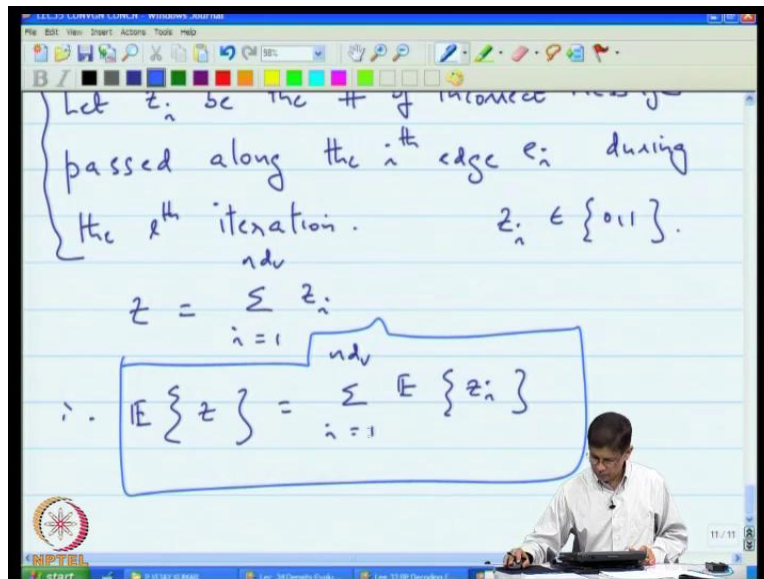 LEC35 CONVGN CONCN - Windows Journal
File Edit View Insert Actions Tools Help
98%
B I
Let z_i be the # of incorrect
passed along the i^th edge e_i during
the l^th iteration. z_i ∈ {0,1}.
z = Σ_{i=1}^{nd_v} z_i
∴ E{z} = Σ_{i=1}^{nd_v} E{z_i}
11/11
NPTEL
start